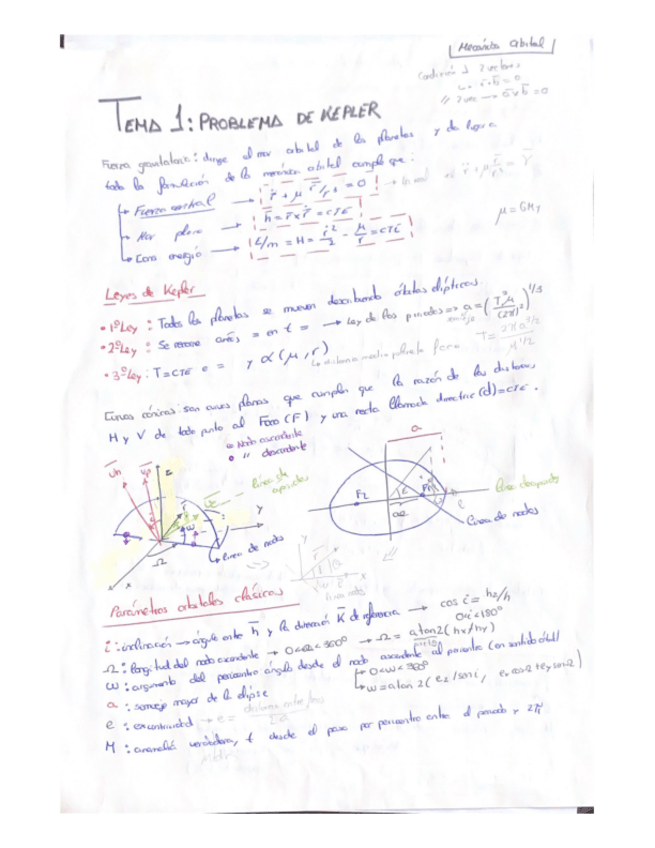 Mecánica Orbital
Condición ⊥ 2 vectores
ā·b̄ = 0
// 2 vec → ā×b̄ = 0
TEMA 1: PROBLEMA DE KEPLER
Fuerza gravitatoria: dirige el mov orbital de los planetas y da lugar a
toda la formulación de la mecánica orbital cumple que:
Fuerza central → r̈ + μ r̄/r³ = 0
Mov plano → h̄ = r̄×ṙ = CTE
Cons energía → E/m = H = ṙ²/2 - μ/r = CTE
μ = GM
Leyes de Kepler
• 1º Ley: Todos los planetas se mueven describiendo órbitas elípticas
• 2º Ley: Se recorre áreas = en t = → Ley de los periodos => a = (T²μ/(2π)²)^1/3
• 3º Ley: T = CTE e = y α (μ, r)
T = 2πa^3/2 / μ^1/2
Curvas cónicas: son curvas planas que cumplen que la razón de las distancias
H y V de todo punto al Foco (F) y una recta llamada directriz (d) = CTE.
Nodo ascendente
" descendente
a
z
Línea de apsides
y
Línea de nodos
Ω
x
F2
ae
Línea de apsides
Línea de nodos
Parámetros orbitales clásicos
i: inclinación → ángulo entre h̄ y la dirección K̄ de referencia → cos i = hz/h
0<i<180º
Ω: longitud del nodo ascendente → 0<Ω<360º → Ω = atan2(hx/hy)
ω: argumento del pericentro ángulo desde el nodo ascendente al pericentro (en sentido órbita)
0<ω<360º
ω = atan2(ez/seni, ex cosΩ + ey senΩ)
a: semieje mayor de la elipse
e: excentricidad → e =
M: anomalía verdadera, t desde el paso por pericentro entre el periodo y 2π